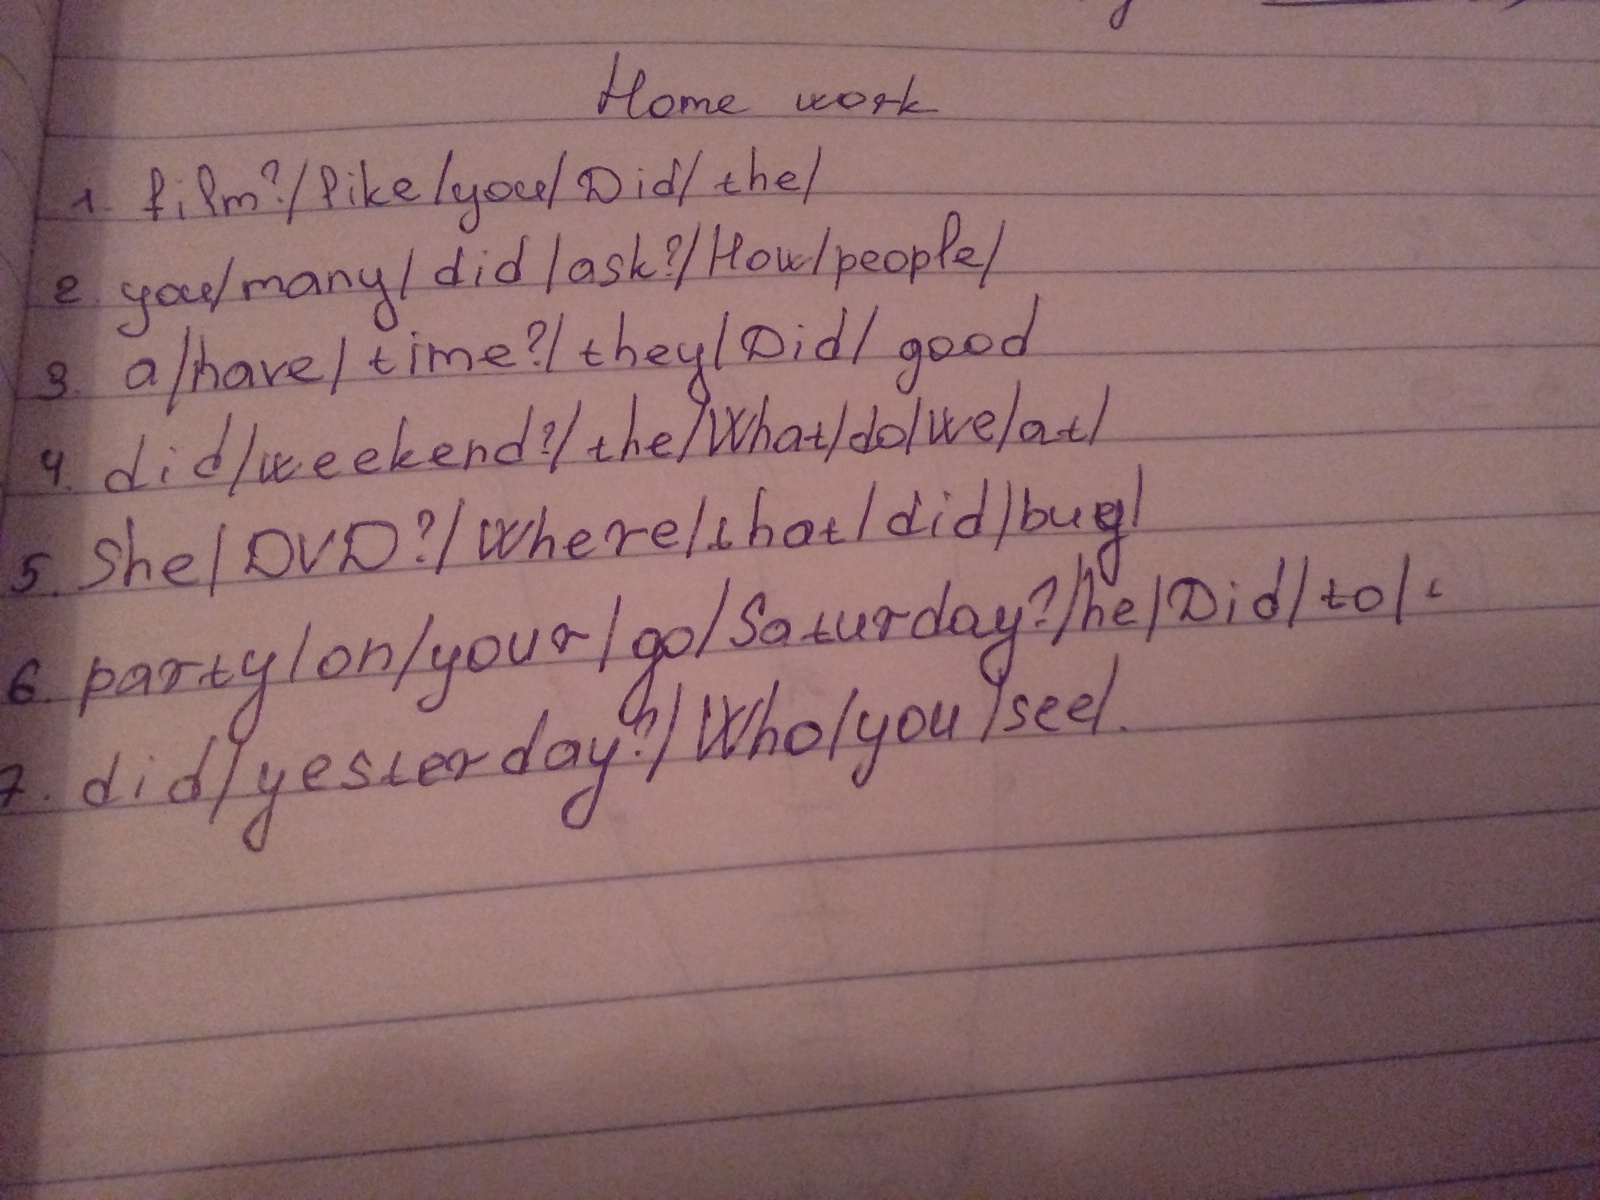 Home work
1. film?/like/you/Did/the/
2. you/many/did/ask?/How/people/
3. a/have/time?/they/Did/good
4. did/weekend?/the/What/do/we/at/
5. She/DVD?/Where/that/did/buy/
6. party/on/your/go/Saturday?/he/Did/to/
7. did/yesterday?/Who/you/see/.